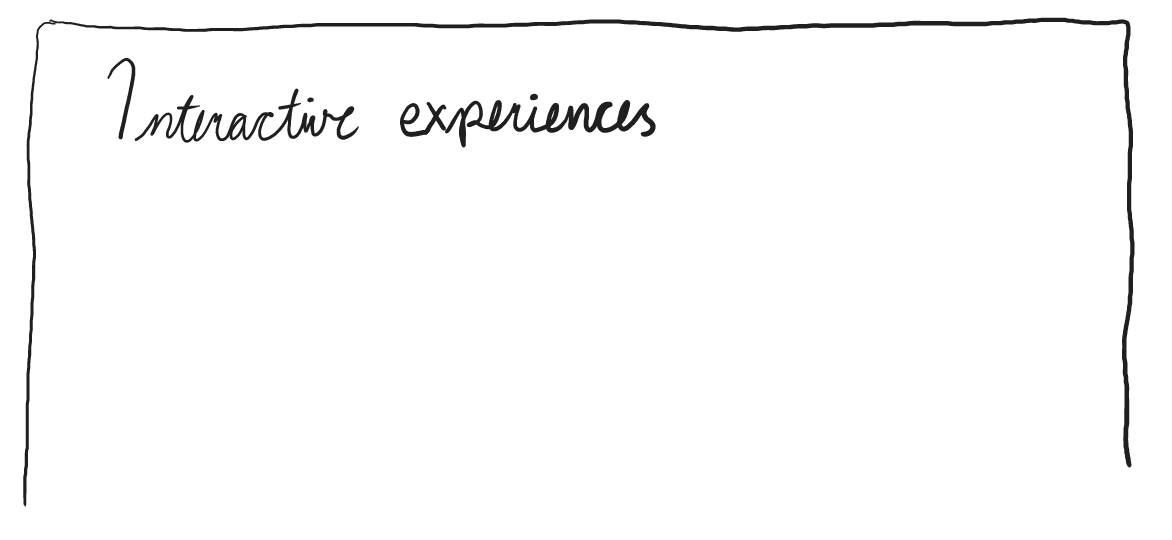 Interactive experiences